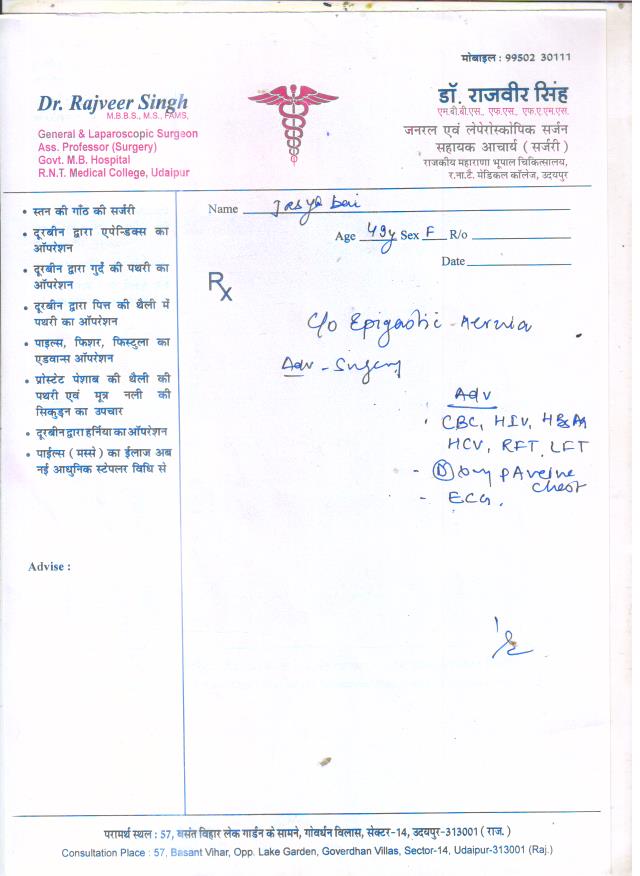 मोबाइल : 99502 30111
Dr. Rajveer Singh
M.B.B.S., M.S., FAMS,
General & Laparoscopic Surgeon
Ass. Professor (Surgery)
Govt. M.B. Hospital
R.N.T. Medical College, Udaipur
डॉ. राजवीर सिंह
एम.बी.बी.एस., एफ.एस., एफ.ए.एम.एस.
जनरल एवं लेपेरोस्कोपिक सर्जन
सहायक आचार्य (सर्जरी)
राजकीय महाराणा भूपाल चिकित्सालय,
र.ना.टै. मेडिकल कॉलेज, उदयपुर
• स्तन की गाँठ की सर्जरी
• दूरबीन द्वारा एपेन्डिक्स का
ऑपरेशन
• दूरबीन द्वारा गुर्दे की पथरी का
ऑपरेशन
• दूरबीन द्वारा पित्त की थैली में
पथरी का ऑपरेशन
• पाइल्स, फिशर, फिस्टुला का
एडवान्स ऑपरेशन
• प्रोस्टेट पेशाब की थैली की
पथरी एवं मूत्र नली की
सिकुड़न का उपचार
• दूरबीन द्वारा हर्निया का ऑपरेशन
• पाईल्स (मस्से) का ईलाज अब
नई आधुनिक स्टेपलर विधि से
Advise :
Name bai
Age 49y Sex F R/o
Date
Rx
C/o Epigastic Hernia
Adv - Surgery
Adv
CBC, HIV, HBsAg
HCV, RFT, LFT
- chest
- ECG.
परामर्थ स्थल : 57, बसंत विहार लेक गार्डन के सामने, गोवर्धन विलास, सेक्टर-14, उदयपुर-313001 ( राज. )
Consultation Place : 57, Basant Vihar, Opp. Lake Garden, Goverdhan Villas, Sector-14, Udaipur-313001 (Raj.)